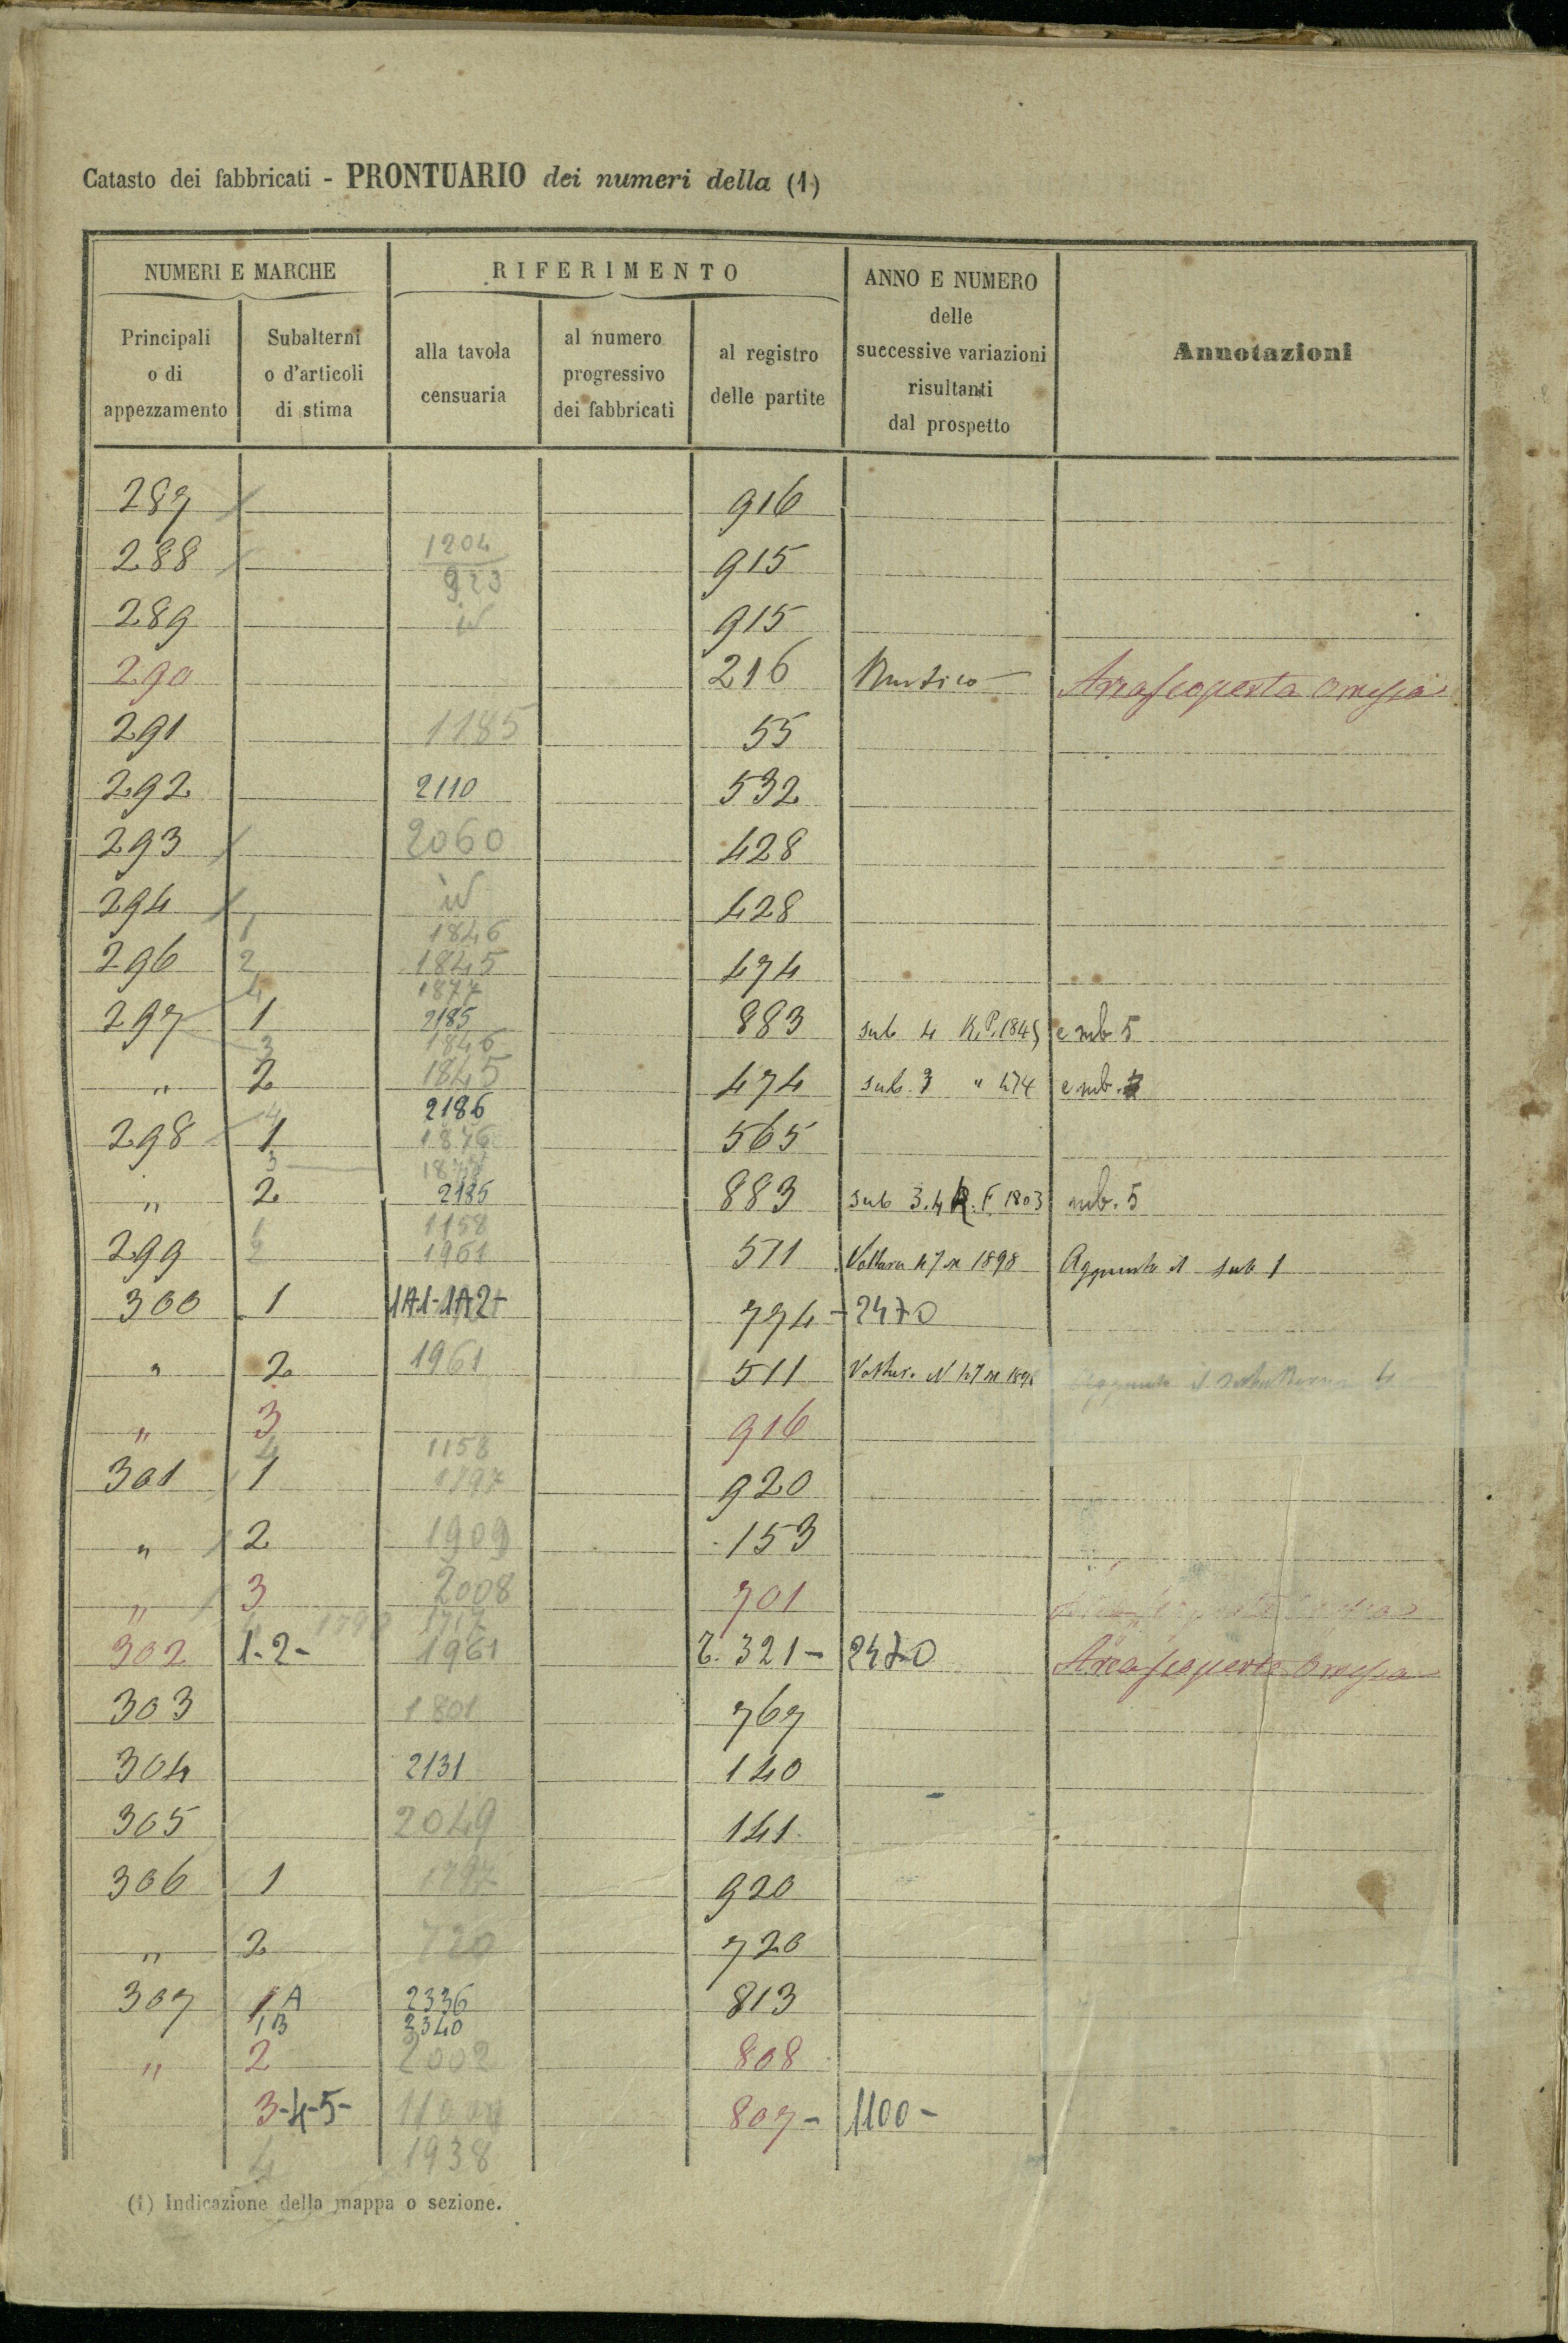 Catasto dei fabbricati - PRONTUARIO dei numeri della (1)
NUMERI E MARCHE
RIFERIMENTO
ANNO E NUMERO
delle
successive variazioni
risultanti
dal prospetto
Annotazioni
Principali
o di
appezzamento
Subalterni
o d'articoli
di stima
alla tavola
censuaria
al numero
progressivo
dei fabbricati
al registro
delle partite
287 916
288 1204 915
923
289 id 915
290 216 Rustico Area scoperta omessa
291 1185 55
292 2110 532
293 2060 428
294 id 428
1 1846
296 2 1845 474
4 1877
297 1 2185 883 sub 4 e sub 5
3 1846
" 2 1845 474 sub. 3 " 474 e sub.
4 2186
298 1 1876 565
3
" 2 2185 883 sub 3.4 sub. 5
1 1158
299 2 1961 511 Voltura 1898 Aggiunto il sub 1
300 1 1A1-1A2- 774 - 2470
" 2 1961 511
" 3 916
4 1158
301 1 1797 920
" 2 1909 153
" 3 2008 701
1717
302 1-2- 1961 321- 2470 Area scoperta omessa
303 1801 767
304 2131 140
305 2049 141
306 1 1797 920
" 2 720 720
307 1A 2336 813
1B 2340
" 2 2002 808
3-4-5- 807- 1100-
4 1938
(1) Indicazione della mappa o sezione.